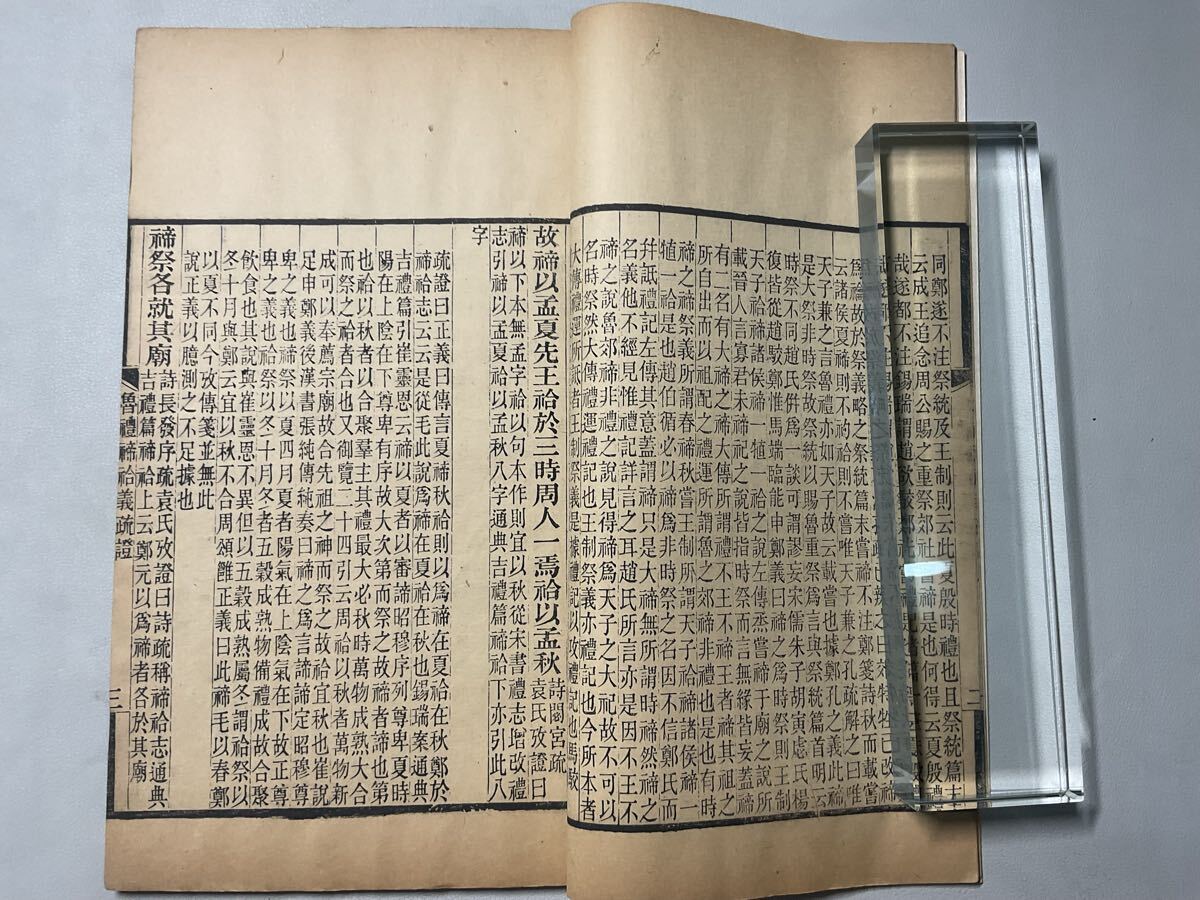 同鄭遂不注祭統及王制則云此夏殷時禮也且祭統篇末
云成王追念周公賜之重祭郊社嘗禘是也何得云夏殷禮
哉遂都不注錫瑞謂趙
爲論故於祭義略之祭統篇末嘗禘不注鄭箋詩秋而載嘗
云諸侯夏禘則不礿秋祫則不嘗唯天子兼之孔疏解之曰唯
天子兼之言魯禮亦如天子故云載嘗也據鄭孔之義此
是大祭非時祭故祭統以賜魯重祭爲言與祭統篇首明云
時祭不同趙氏併爲一談可謂謬妄宋儒朱子胡寅虙氏楊
復皆從趙駁鄭惟馬端臨能申鄭義曰以禘爲時祭則王制
天子祫禘諸侯禘一犆一祫之說左傳烝嘗禘于廟之說所
載晉人言寡君未禘祀之說皆指時祭而言無緣皆妄蓋禘
有二名有大禘之禘大傳所謂禮不王不禘王者禘其祖之
所自出而以祖配之禮運所謂魯之郊禘非禮也是也有時
禘之禘祭義所謂春禘秋嘗王制所謂天子祫禘諸侯禘一
犆一祫是也趙伯循必以禘爲非時祭之名因不信鄭氏而
幷詆禮記左傳其意蓋謂禘只是大禘無所謂時禘然禘之
名義他不經見惟禮記詳言之耳趙氏所言亦是因不王不
禘之說魯郊禘非禮之說見得禘爲天子之大祀故不可以
名時祭然大傳禮運禮記也王制祭義亦禮記也今所本者
大傳禮運所詆者王制祭義是據禮記以攻禮記也馬駁
故禘以孟夏先王祫於三時周人一焉祫以孟秋詩閟宮疏
袁氏攷證曰
禘以下本無孟字祫以句本作則宜以秋從宋書禮志增改禮
志引禘以孟夏祫以孟秋八字通典吉禮篇禘祫下亦引此八
字
疏證曰正義曰傳言夏禘秋祫則以爲禘在夏祫在秋鄭於
禘祫志云云是從毛此說爲禘在夏祫在秋也錫瑞案通典
吉禮篇引崔靈恩云禘以夏者以審諦昭穆序列尊卑夏時
陽在上陰在下尊卑有序故大次第而祭之故禘者諦也第
也祫以秋者以合聚羣主其禮最大必秋時萬物成熟大合
而祭之祫者合也又御覽二十四引云周祫以秋者萬物新
成可以奉薦宗廟故合先祖之神而祭之故祫宜秋也崔說
足申鄭義後漢書張純傳純奏曰禘之爲言諦諦定昭穆尊
卑之義也禘祭以夏四月夏者陽氣在上陰氣在下故正尊
卑之義也祫祭以冬十月冬者五穀成熟物備禮成故合聚
飲食也其說與崔靈恩不異但以五穀成熟屬冬謂祫祭以
冬十月與鄭云宜以秋不合周頌雝正義曰此禘毛以春鄭
以夏不同今攷傳箋並無此
說正義以臆測之不足據也
禘祭各就其廟詩長發序疏袁氏攷證曰詩疏稱禘祫志通典
吉禮篇禘祫上云鄭元以爲禘者各於其廟
魯禮禘祫義疏證
三
二